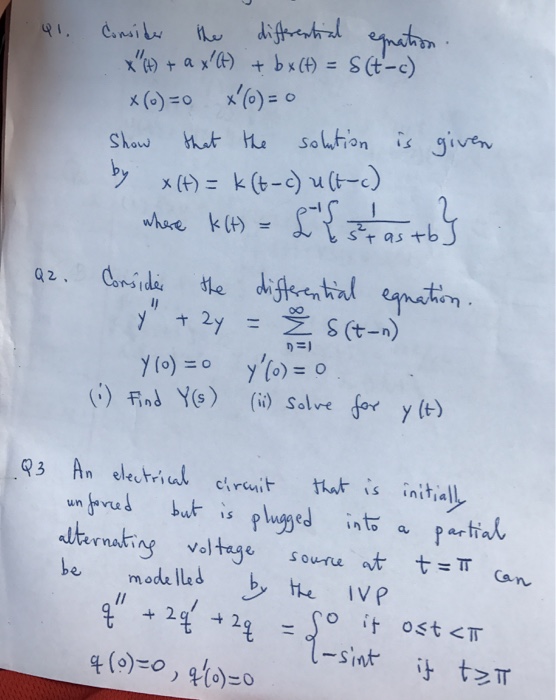 Q1. Consider the differential equation.
x''(t) + a x'(t) + b x(t) = δ(t-c)
x(0)=0 x'(0)=0
Show that the solution is given
by x(t) = k(t-c) u(t-c)
where k(t) = ℒ⁻¹{ 1/(s² + as + b) }
Q2. Consider the differential equation.
y'' + 2y = ∑_{n=1}^{∞} δ(t-n)
y(0) = 0 y'(0) = 0
(i) Find Y(s) (ii) Solve for y(t)
Q3 An electrical circuit that is initially
unforced but is plugged into a partial
alternating voltage source at t = π can
be modelled by the IVP
q'' + 2q' + 2q = { 0 if 0≤t<π
-sint if t≥π
q(0)=0, q'(0)=0